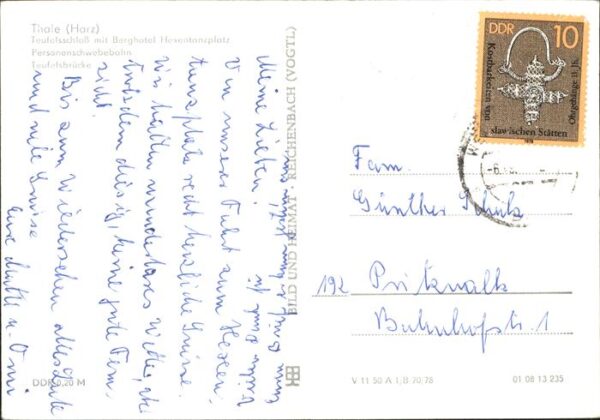 Thale (Harz)
Teufelsschloß mit Berghotel Hexentanzplatz
Personenschwebebahn
Teufelsbrücke
Meine Lieben!
Von unserer Fahrt zum Hexen-
tanzplatz recht herzliche Grüsse.
Wir hatten wunderbares Wetter, aber
trotzdem diesig, keine gute Fern-
sicht.
Bis zum Wiedersehen alles Gute
und viele Grüsse
Eure Mutti u. Omi
DDR 0,20 M
BILD UND HEIMAT REICHENBACH (VOGTL)
DDR 10
Kostbarkeiten von
slawischen Stätten
Ohrgehänge 11. Jh.
Fam.
Günther Schulz
192 Pritzwalk
Bahnhofstr. 1
V 11 50 A 1/B 70/78
01 08 13 235